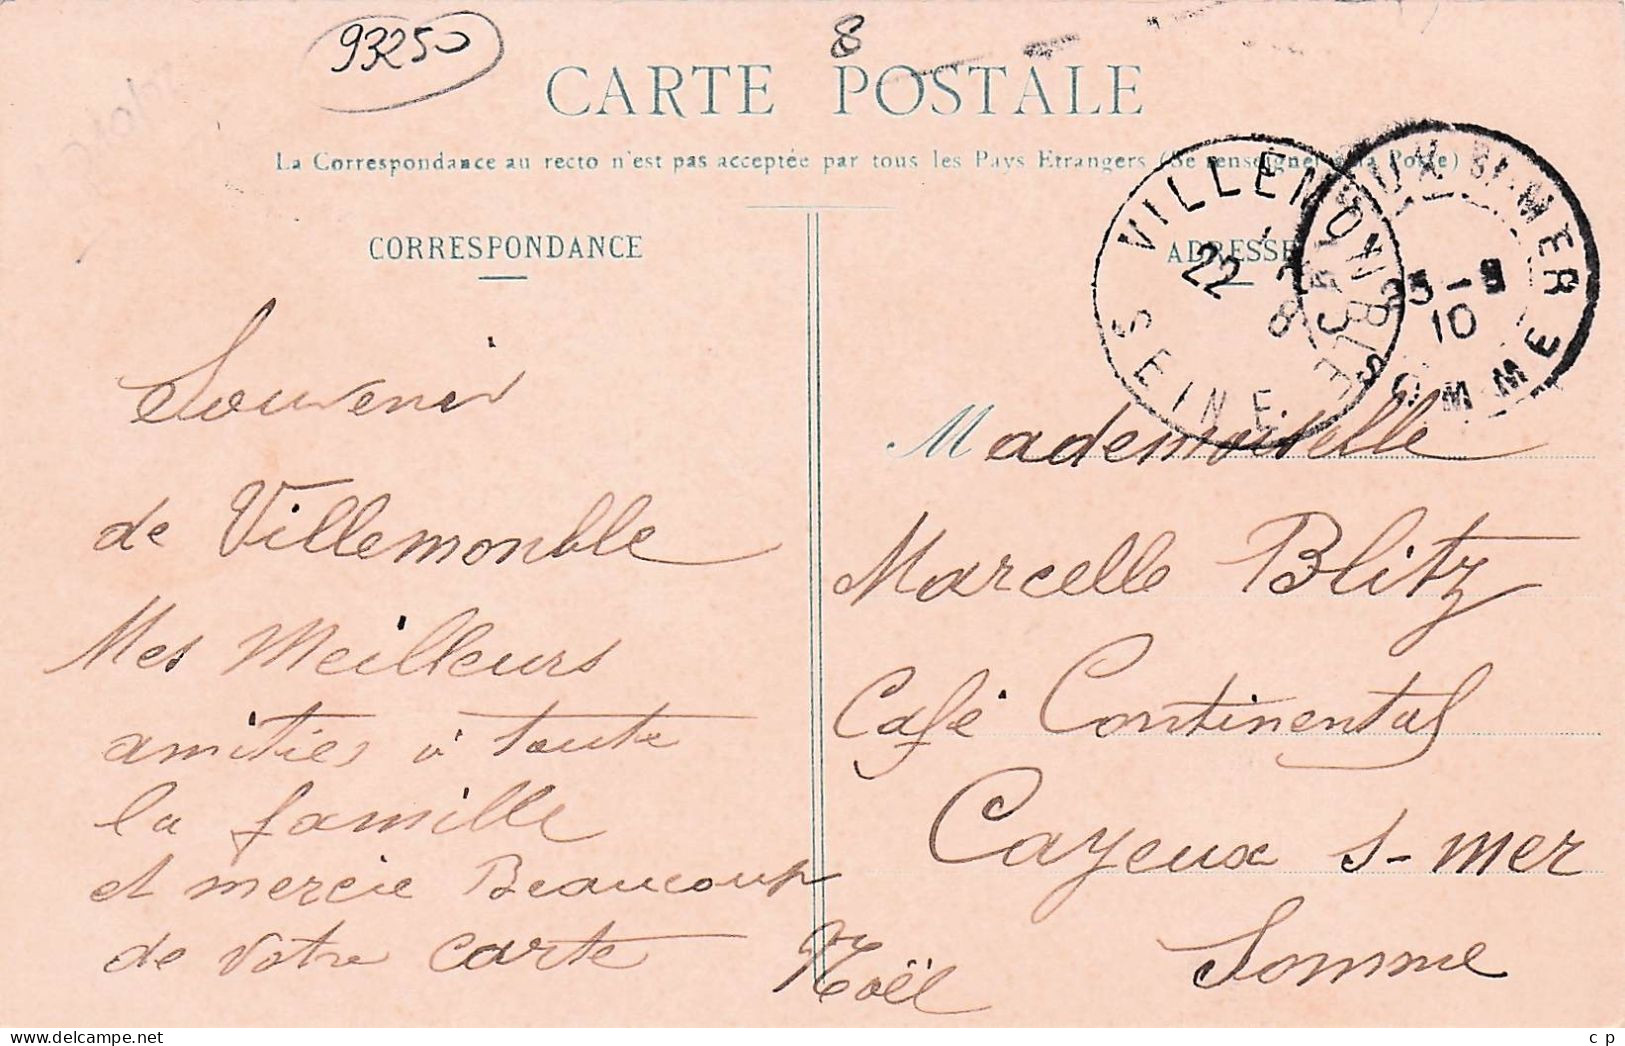 93250
8
CARTE POSTALE
La Correspondance au recto n'est pas acceptée par tous les Pays Etrangers (Se renseigner à la Poste)
CORRESPONDANCE
ADRESSE
VILLEMOMBLE
22
SEINE
CAYEUX-SR-MER
10
SOMME
Souvenir
de Villemonble
Mes Meilleurs
amities à toute
la famille
et mercie Beaucoup
de votre carte
Noël
Mademoiselle
Marcelle Blitz
Café Continental
Cayeux s-mer
Somme
delcampe.net
c p